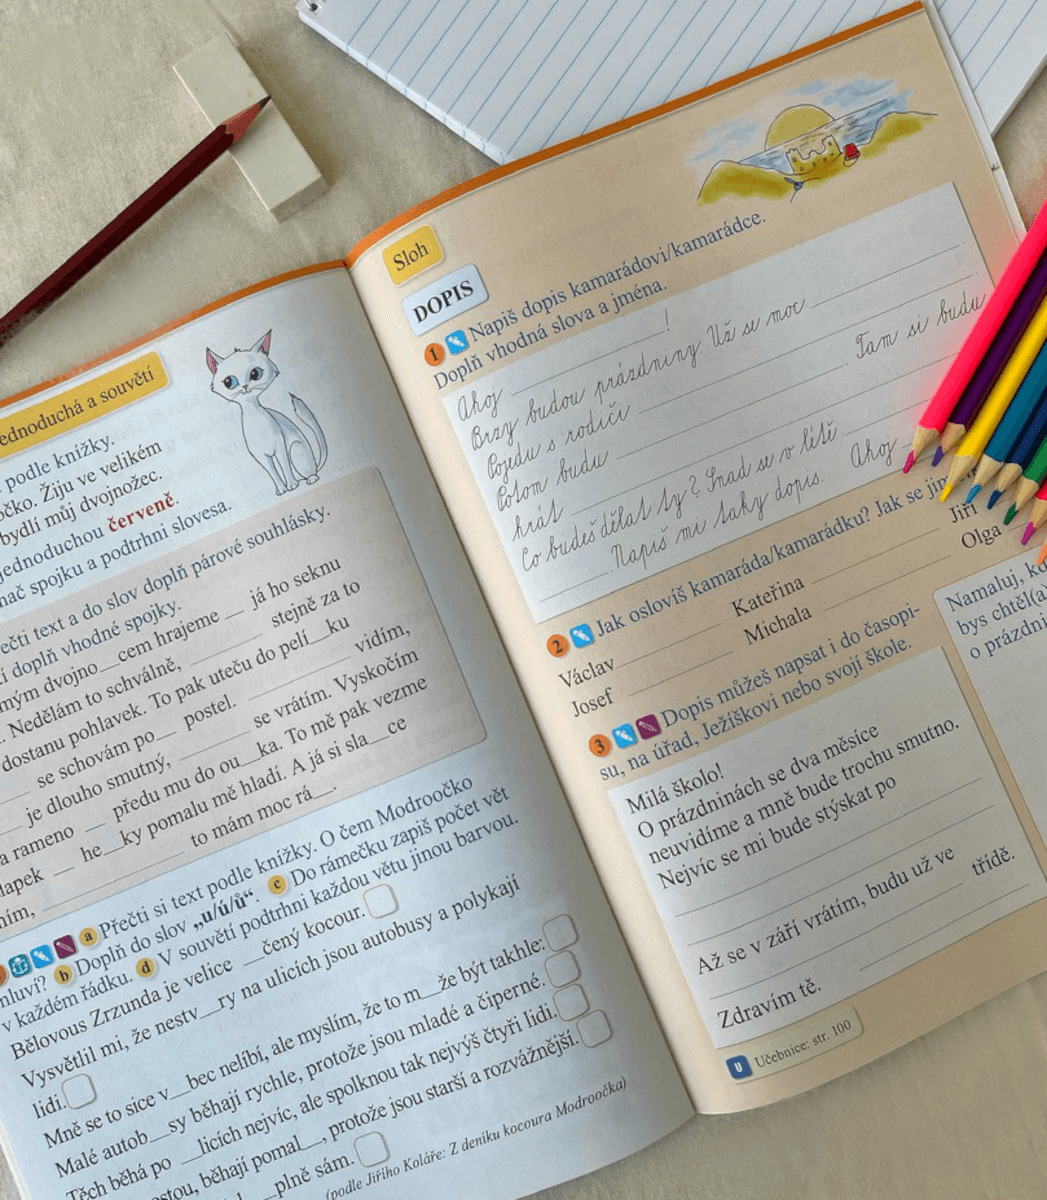 ednoduchá a souvětí
podle knížky.
očko. Žiju ve velikém
bydlí můj dvojnožec.
jednoduchou červeně.
nač spojku a podtrhni slovesa.
ečti text a do slov doplň párové souhlásky.
í doplň vhodné spojky.
mým dvojno__cem hrajeme __ já ho seknu
. Nedělám to schválně, ______ stejně za to
dostanu pohlavek. To pak uteču do pelí__ku
__ se schovám po__ postel. ______ vidím,
__ je dlouho smutný, ______ se vrátím. Vyskočím
a rameno __ předu mu do ou__ka. To mě pak vezme
lapek __ he__ky pomalu mě hladí. A já si sla__ce
ním, ______ to mám moc rá__.
a Přečti si text podle knížky. O čem Modroočko
mluví? b Doplň do slov „u/ú/ů“. c Do rámečku zapiš počet vět
v každém řádku. d V souvětí podtrhni každou větu jinou barvou.
Bělovous Zrzunda je velice __čený kocour.
Vysvětlil mi, že nestv__ry na ulicích jsou autobusy a polykají
lidi.
Mně se to sice v__bec nelíbí, ale myslím, že to m__že být takhle:
Malé autob__sy běhají rychle, protože jsou mladé a čiperné.
Těch běhá po __licích nejvíc, ale spolknou tak nejvýš čtyři lidi.
stou, běhají pomal__, protože jsou starší a rozvážnější.
__plně sám.
(podle Jiřího Koláře: Z deníku kocoura Modroočka)
Sloh
DOPIS
1 Napiš dopis kamarádovi/kamarádce.
Doplň vhodná slova a jména.
Ahoj ______!
Brzy budou prázdniny. Už se moc ______.
Pojedu s rodiči ______.
Potom budu ______. Tam si budu
hrát ______
Co budeš dělat ty? Snad se v létě
______. Napiš mi taky dopis. Ahoj
2 Jak oslovíš kamaráda/kamarádku? Jak se
Václav ______ Kateřina ______ Jiří
Josef ______ Michala ______ Olga
3 Dopis můžeš napsat i do časopi-
su, na úřad, Ježíškovi nebo svojí škole.
Milá školo!
O prázdninách se dva měsíce
neuvidíme a mně bude trochu smutno.
Nejvíc se mi bude stýskat po
______
Až se v září vrátím, budu už ve
______ třídě.
Zdravím tě. ______
Namaluj,
bys chtěl(a
o prázdni
U Učebnice: str. 100